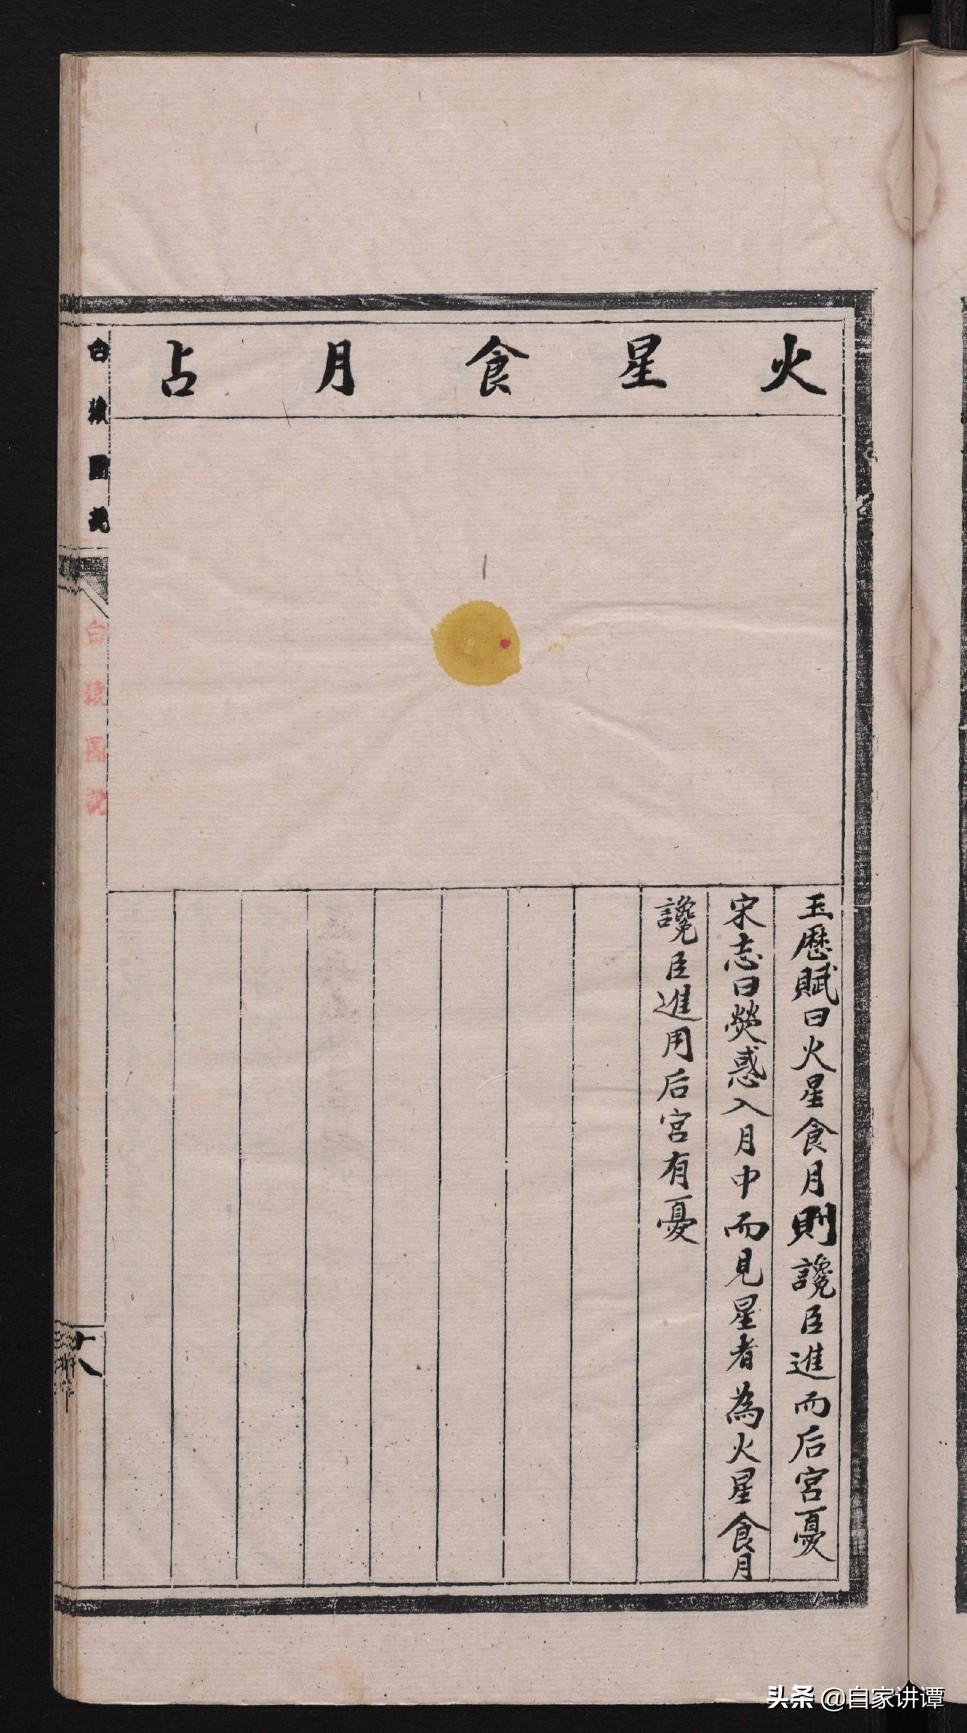 火星食月占
玉歷賦曰火星食月則讒臣進而后宮憂
宋志曰熒惑入月中而見星者為火星食月
讒臣進用后宮有憂
白猿圖說
白猿圖說
十八
头条 @自家讲谭